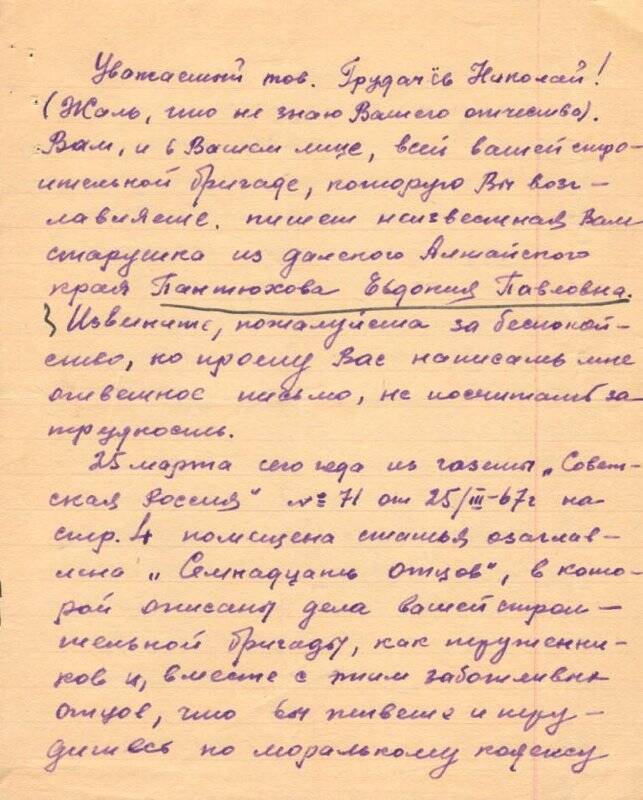 Уважаемый тов. Грудачёв Николай!
(Жаль, что не знаю Вашего отчества).
Вам, и в Вашем лице, всей вашей стро-
ительной бригаде, которую Вы возг-
лавляете. пишет неизвестная Вам
старушка из далекого Алтайского
края Пантюхова Евдокия Павловна.
Извините, пожалуйста за беспокой-
ство, но прошу Вас написать мне
ответное письмо, не посчитать за
трудность.
25 марта сего года из газеты „Совет-
ская Россия" № 71 от 25/III-67г на
стр. 4 помещена статья озаглав-
лена „Семнадцать отцов", в кото-
рой описаны дела вашей строи-
тельной бригады, как тружени-
ков и, вместе с этим заботливых
отцов, что вы живете и тру-
дитесь по моральному кодексу